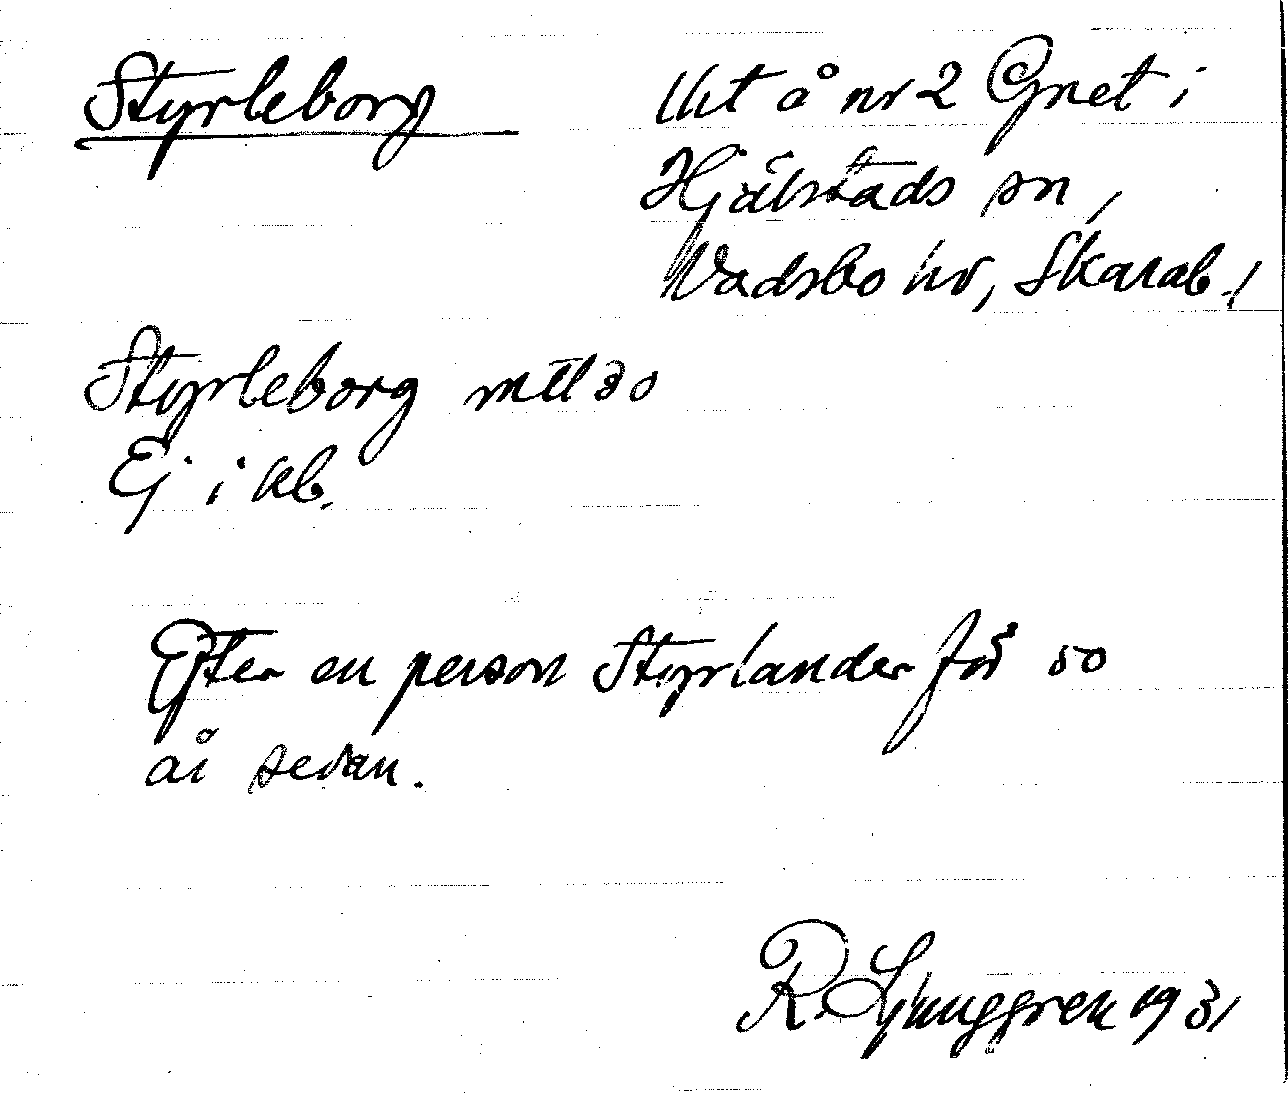 Styrleborg
Utt å nr 2 Gnet i
Hjälstads sn,
Vadsbo hd, Skarab.l
Styrleborg mtl 30
Ej i kb.
Efter en person Styrlander för 50
år sedan.
R. Ljunggren 1931